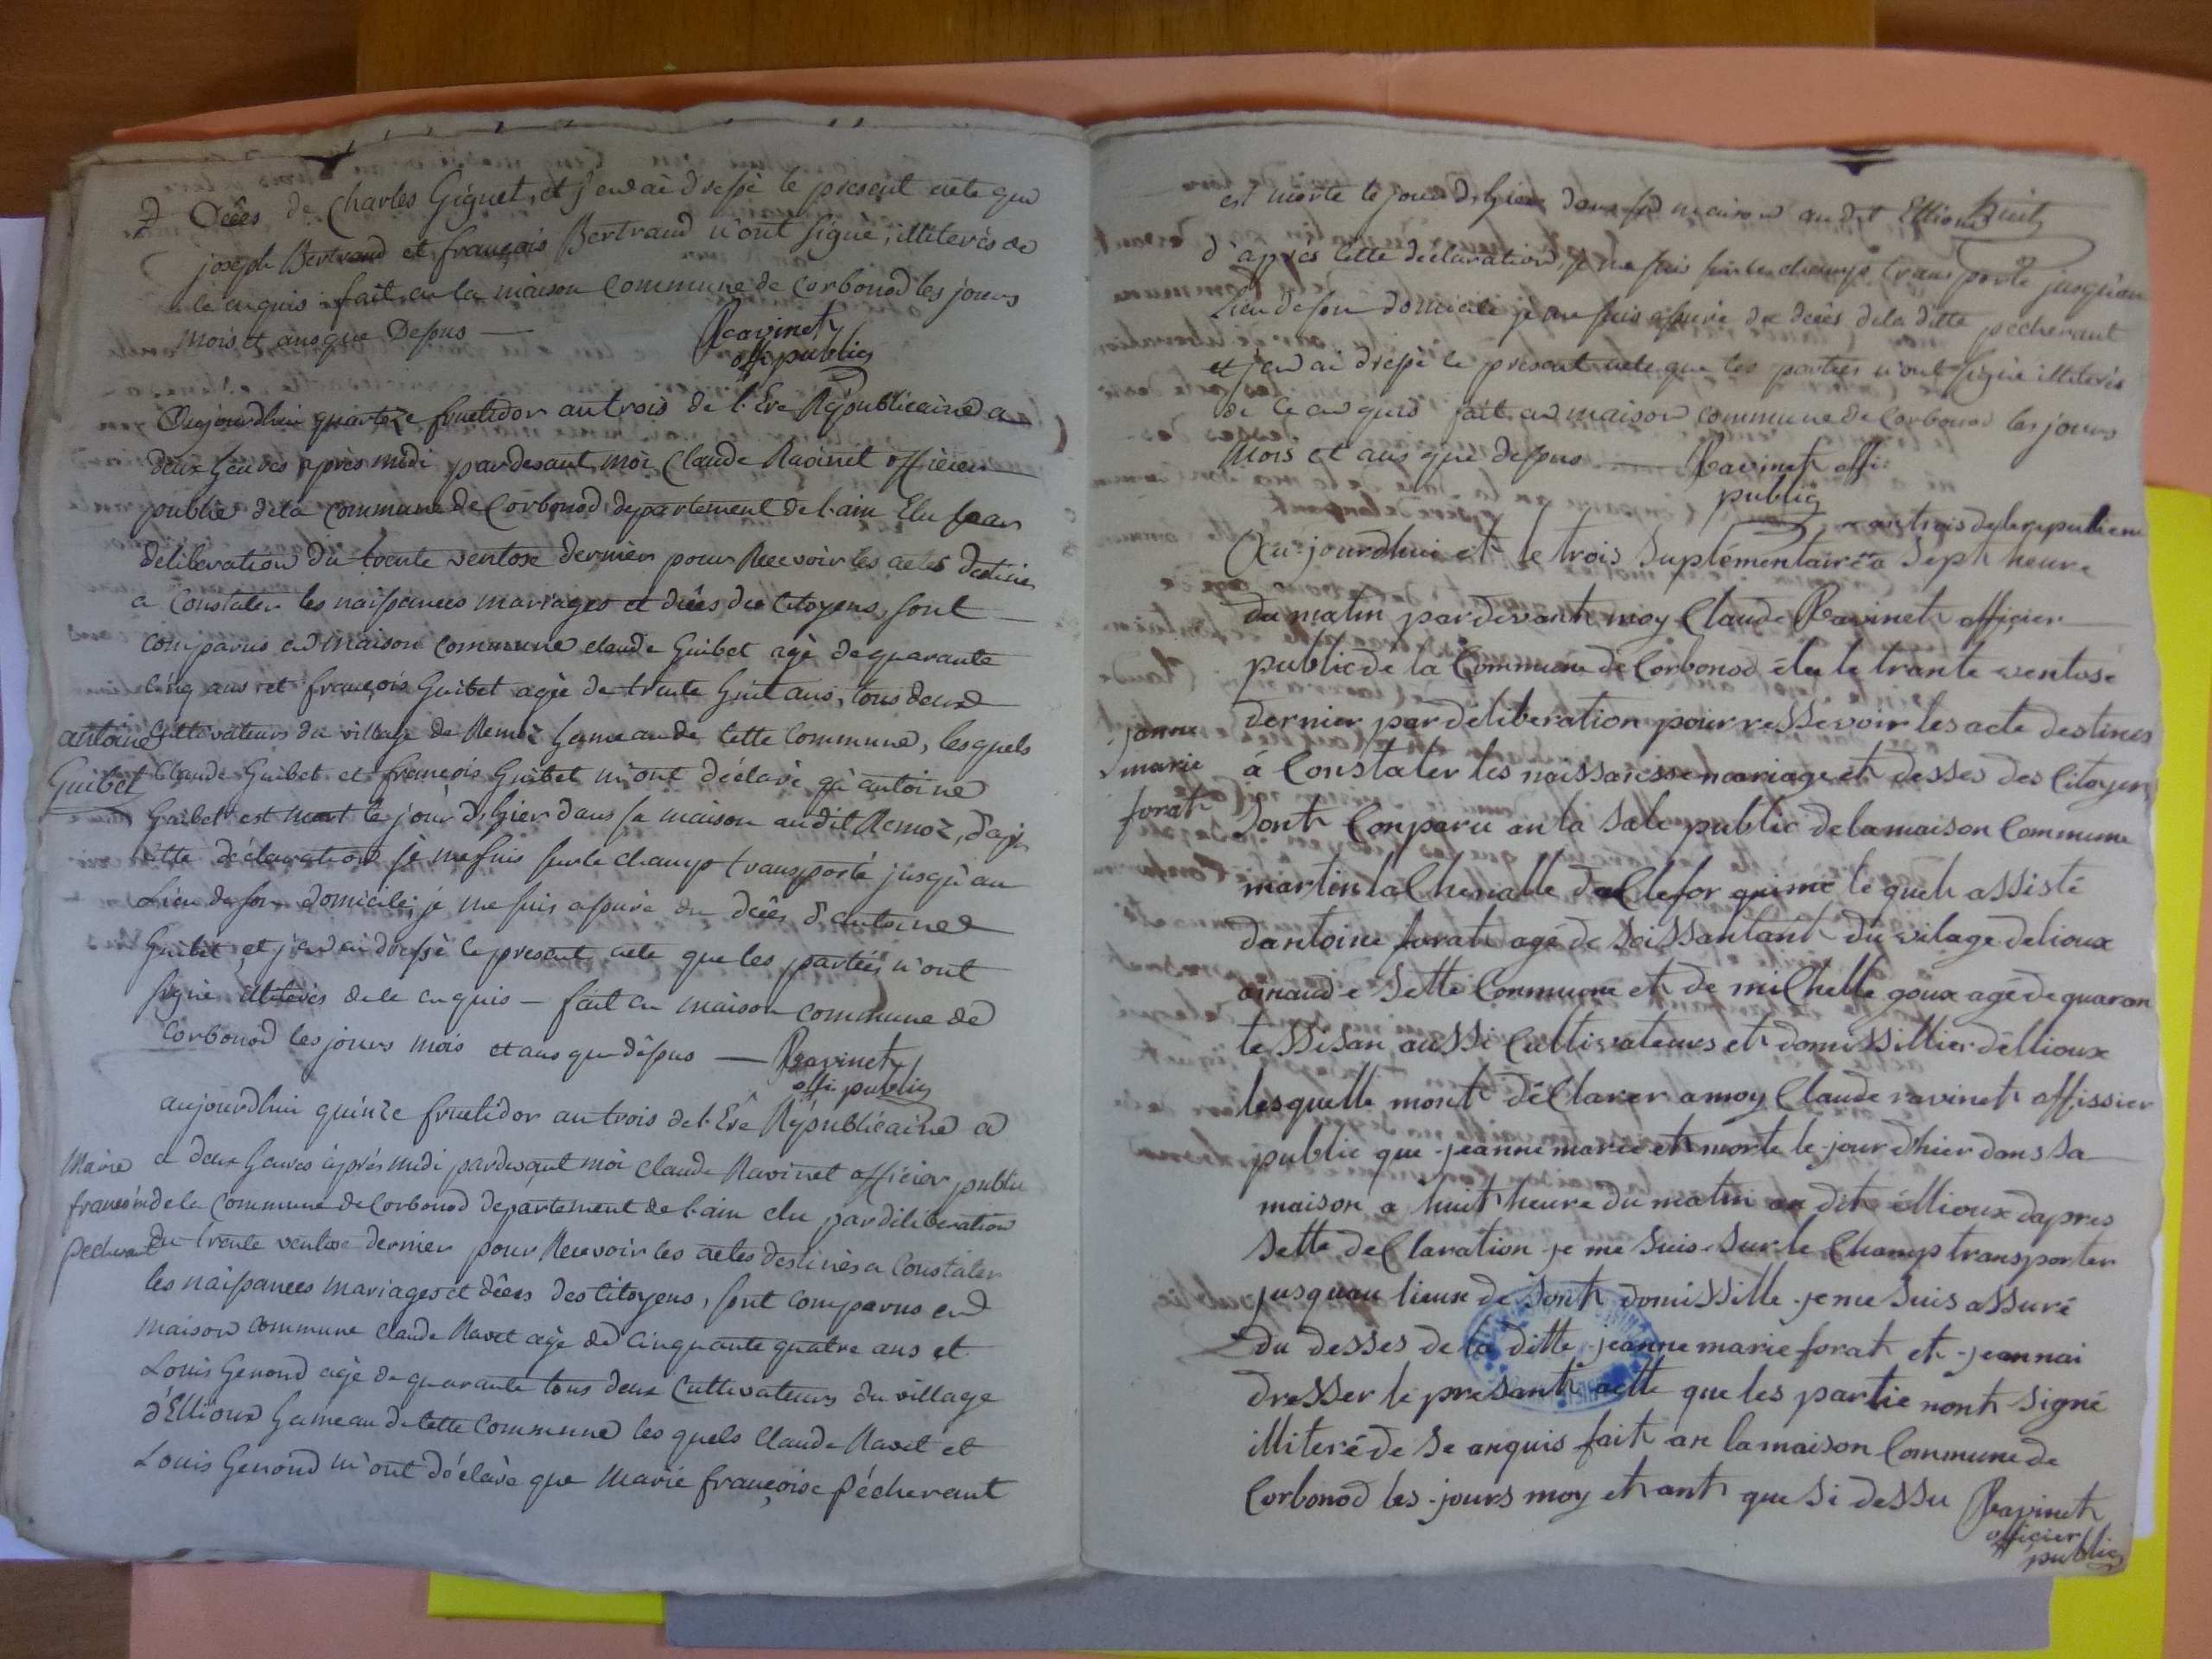 Décès de Charles Giguet, et j'en ai dressé le present acte que
joseph Bertrand et françois Bertrand n'ont signé, illiterés de
ce enquis fait en la maison Commune de Corbonod les jours
mois et ans que Dessus —
Ravinet
offi. public
Aujourdhui quatorze fructidor an trois de l'Ere Républicaine a
deux heures après midi pardevant moi Claude Ravinet officier
public de la commune de Corbonod, departement de l'ain Elu par
deliberation du trente ventose dernier pour Recevoir les actes destinés
a Constater les naissances mariages et décès des Citoyens, sont
comparus en maison Commune claude Guibet agé de quarante
cinq ans et françois Guibet agé de trente huit ans, tous deux
Cultivateurs du village de Remoz hameau de Cette Commune, lesquels
antoine
Guibet
Claude Guibet et françois Guibet m'ont déclaré qu'antoine
Guibet est mort le jour d'hier dans sa maison audit Remoz, d'ap.
Cette déclaration je me suis sur le champ transporté jusqu'au
Lieu de son domicile, je me suis assuré du décès d'antoine
Guibet, et j'en ai dressé le present acte que les parties n'ont
signé illiterés de ce enquis — fait en maison commune de
Corbonod les jours mois et ans que dessus — Ravinet
offi. public
aujourdhui quinze fructidor an trois de l'Ere Républicaine a
a deux heures après midi pardevant moi Claude Ravinet officier public
Marie
françoise
Pecherant
de la Commune de Corbonod departement de l'ain elu par deliberation
du trente ventose dernier pour Recevoir les actes destinés a Constater
les naissances mariages et décès des Citoyens, sont comparus en
maison commune Claude Ravet agé de cinquante quatre ans et
Louis Genond agé de quarante tous deux Cultivateurs du village
d'Ellioux hameau de Cette Commune les quels Claude Ravet et
Louis Genond m'ont déclaré que Marie françoise Pécherant
est morte le jour d'hier dans sa maison audit Ellioux
d'après Cette déclaration, je me suis sur le champ transporté jusqu'au
Lieu de son domicile je me suis assuré du décès de la ditte pecherant
et j'en ai dressé le present acte que les parties n'ont signé illiterés
de ce enquis fait en maison commune de Corbonod les jours
Mois et ans que dessus Ravinet offi.
public
an trois de lere publicene
Au-jourdhui et le trois Suplémentaire a Sept heure
du matin pardevant moy Claude Ravinet officier
public de la Commune de Corbonod élu le trante ventose
dernier par déliberation pour ressevoir les acte destines
janne
marie
forat
á Constater les naissansse mariage et desses des Citoyen
Sont Conparu an la Sale public de la maison Commune
martin la Chenalle le queh assisté
dantoine forat agé de Soissantant du vilage delioux
amaud e Sette Commune et de miChelle goux agé de quaran
te Ssisan aussi Cultivateurs et domissillier déllioux
lesquelle mont déClarer amoy Claude ravinet offissier
public que jeanne marie et morte le jour d'hier dans sa
maison a huit heure du matin au dit éllioux dapres
Sette déClaration je me Suis Sur le Champ transporter
jusquau lieux de Sont domissille je me Suis assuré
du desses de la ditte jeanne marie forat et jeannai
dresser le presant actte que les partie nont Signé
illiteré de Se anquis fait an la maison Commune de
Corbonod les jours moy et ant que Si dessu Ravinet
officier
public